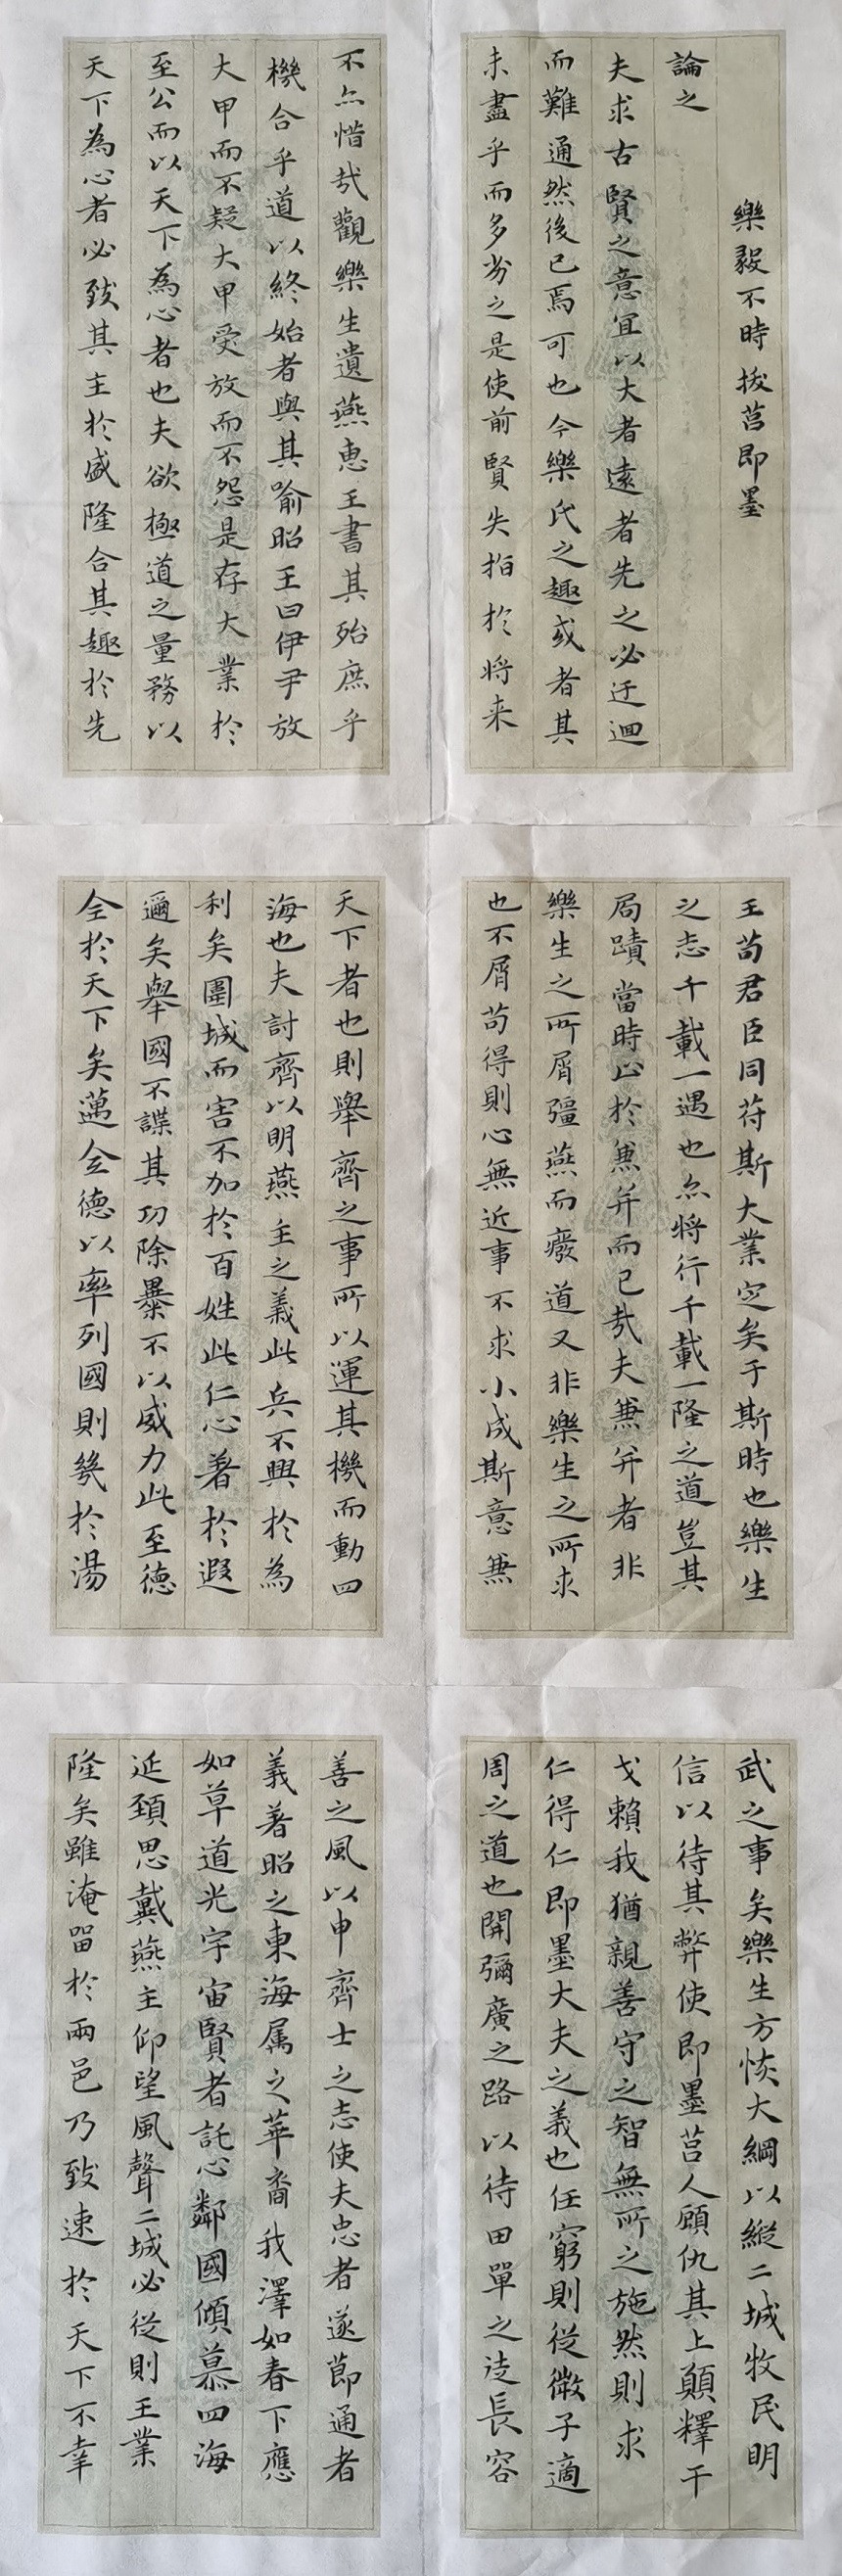 樂毅不時拔莒即墨
論之
夫求古賢之意宜以大者遠者先之必迂迴
而難通然後已焉可也今樂氏之趣或者其
未盡乎而多劣之是使前賢失指於將来
不亦惜哉觀樂生遺燕惠王書其殆庶乎
機合乎道以終始者與其喻昭王曰伊尹放
大甲而不疑大甲受放而不怨是存大業於
至公而以天下為心者也夫欲極道之量務以
天下為心者必致其主於盛隆合其趣於先
王苟君臣同苻斯大業定矣于斯時也樂生
之志千載一遇也亦將行千載一隆之道豈其
局蹟當時止於兼并而已哉夫兼并者非
樂生之所屑彊燕而廢道又非樂生之所求
也不屑苟得則心無近事不求小成斯意兼
天下者也則舉齊之事所以運其機而動四
海也夫討齊以明燕主之義此兵不興於為
利矣圍城而害不加於百姓此仁心著於遐
邇矣舉國不謀其功除暴不以威力此至德
全於天下矣邁全德以率列國則幾於湯
武之事矣樂生方恢大綱以縱二城牧民明
信以待其弊使即墨莒人顧仇其上願釋干
戈賴我猶親善守之智無所之施然則求
仁得仁即墨大夫之義也任窮則従微子適
周之道也開彌廣之路以待田單之徒長容
善之風以申齊士之志使夫忠者遂節通者
義著昭之東海属之華裔我澤如春下應
如草道光宇宙賢者託心鄰國傾慕四海
延頚思戴燕主仰望風聲二城必従則王業
隆矣雖淹留於兩邑乃致速於天下不幸